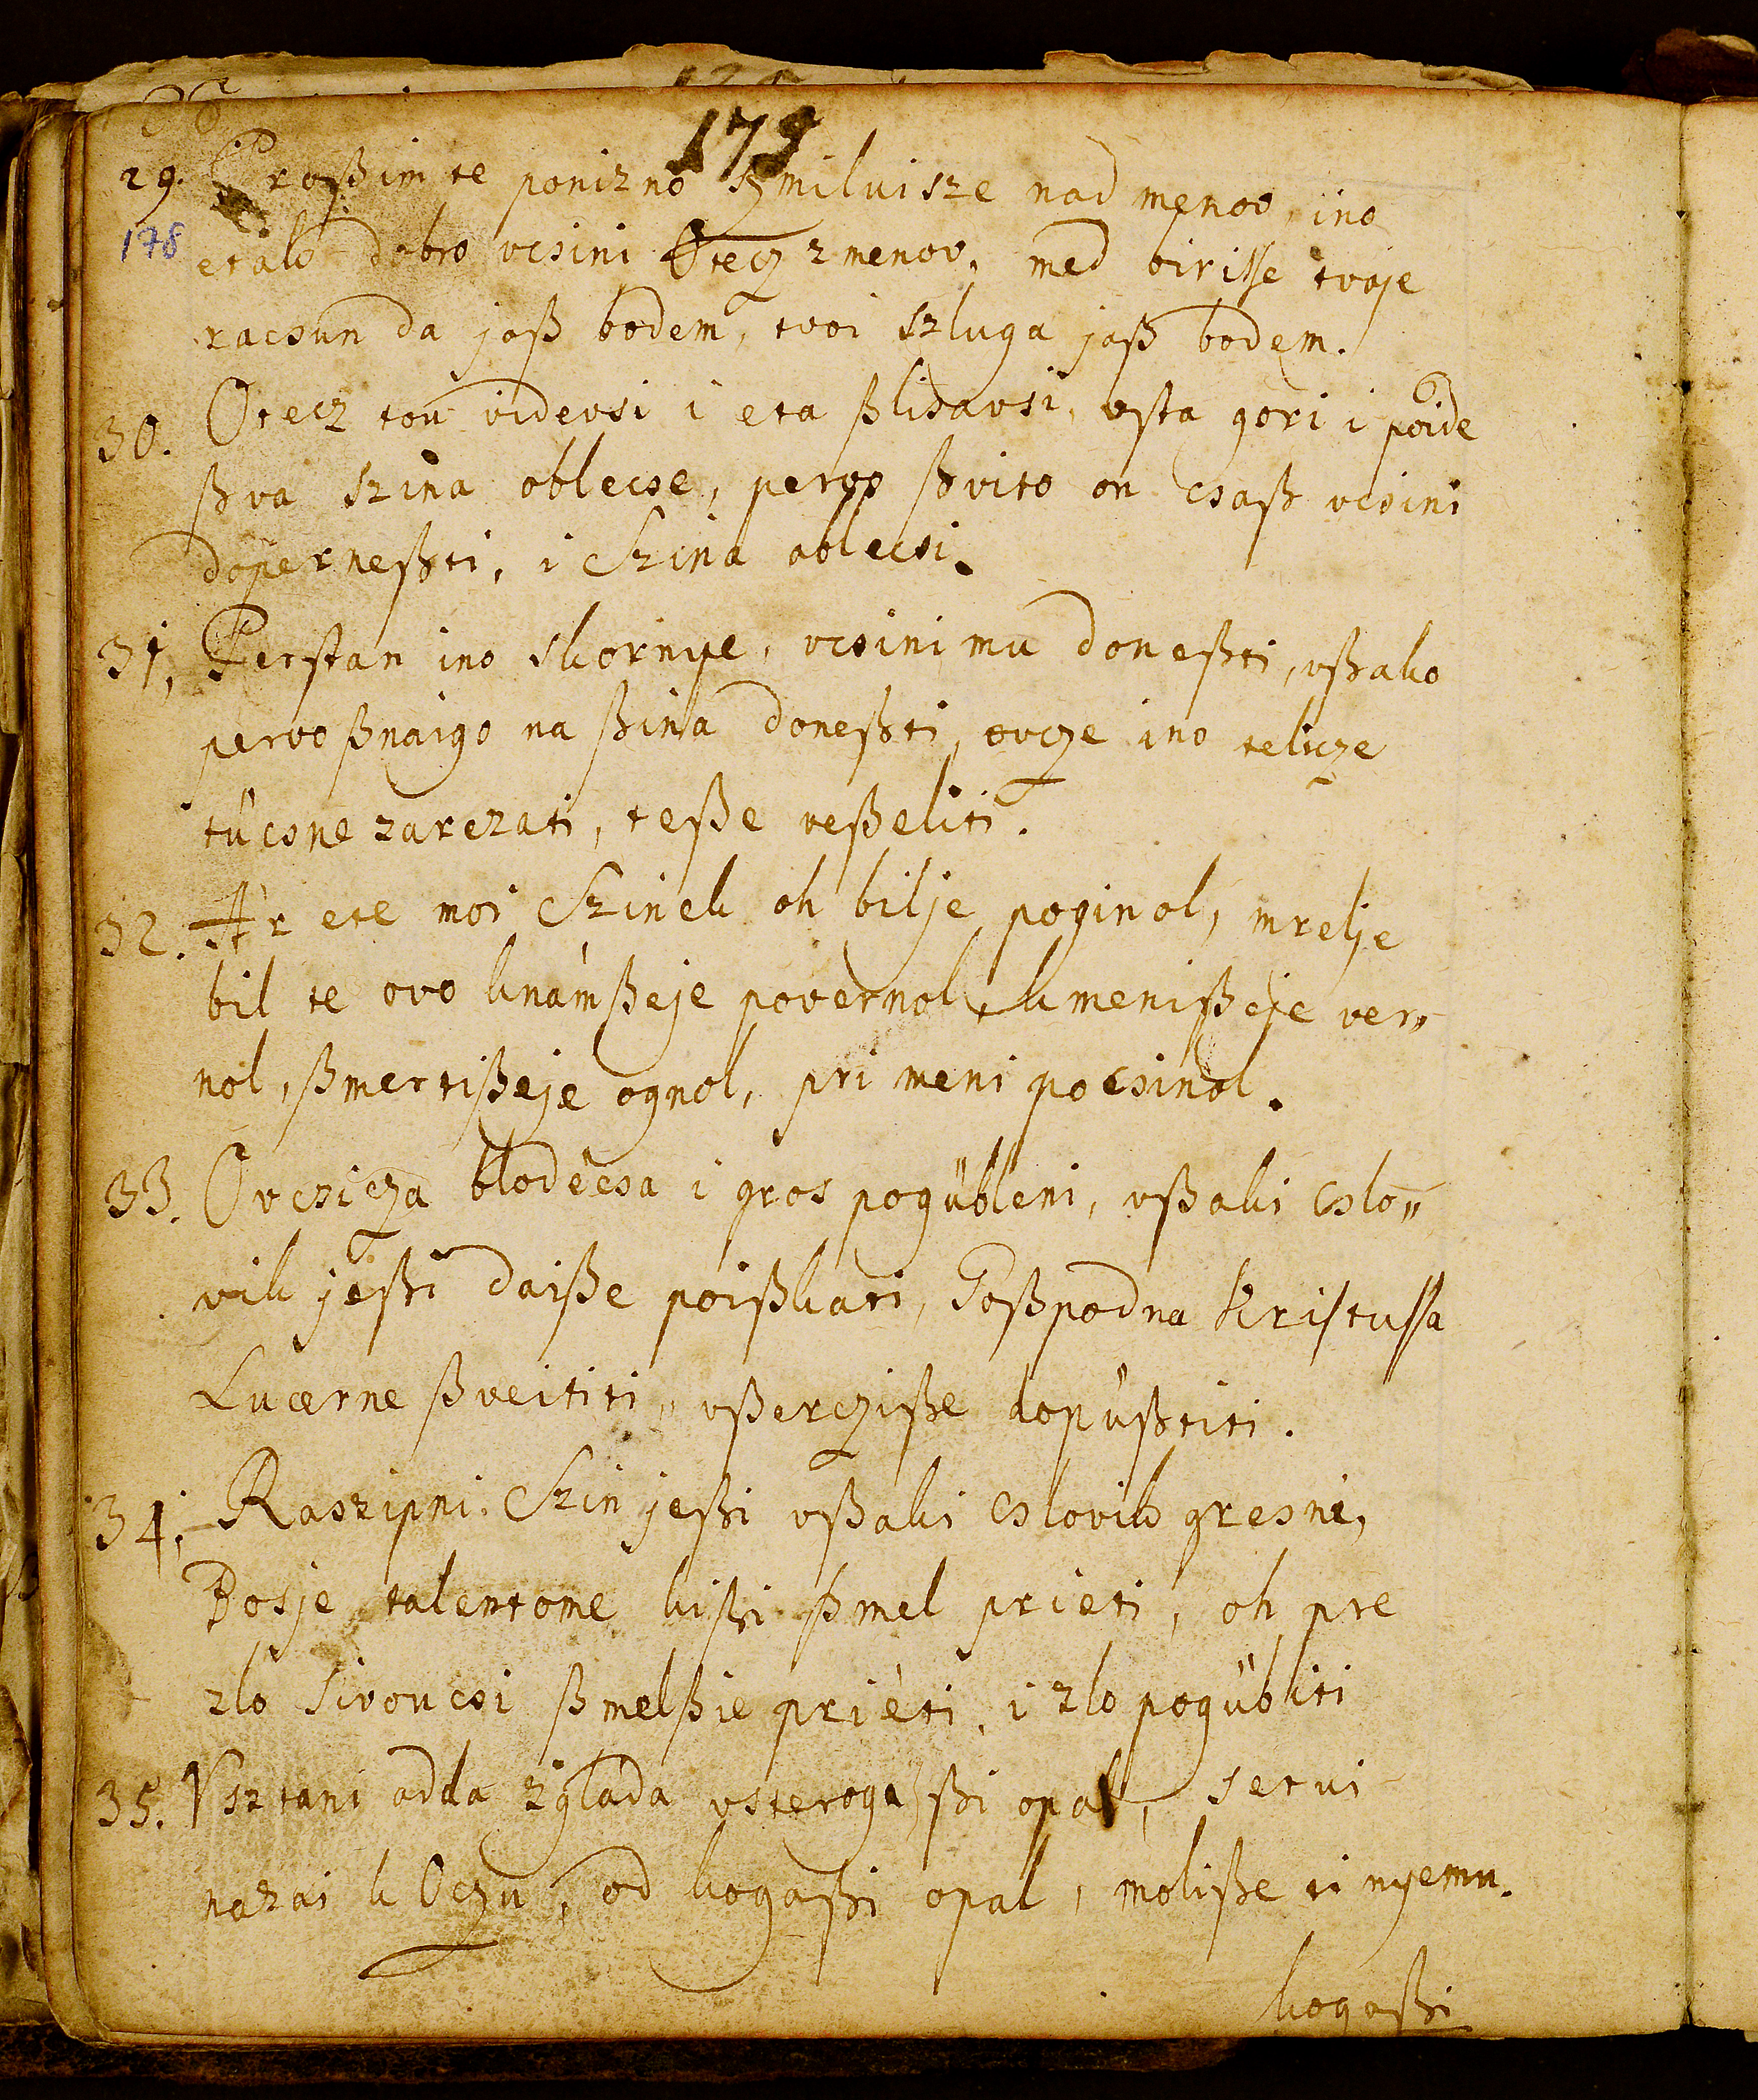 179
29. Proßim te ponizno szmilui sze nad menov, ino
178
etak dobro vcsini Otecz z menov, med virisse tvoje
racsun da jaß bodem, tvoi szluga jaß bodem.
30. Otecz tou videvsi i eta ßlisavsi, vsta gori i poide
ßva szina oblecse, pervo ßvito on csaß vcsini
doperneßti, i Szina oblecsi.
31. Perstan ino skornye, vcsini mu doneßti, vßako
pervo ßnaigo na ßina doneßti, ovcze ino telicze
tücsne zarezati, teße veßeliti.
32. Ár ete moi Szinek oh bilje poginol, mrelje
bil te ovo knámßeje povernol, k menißeje ver„
nol, ßmertißeje ognol, pri meni pocsinol.
33. Ovcsicza blodécsa i gros pogübleni, vßaki cslo„
vik jeßi daiße poißkati, Goßpodna Kristussa
Lucerne ßveititi, vßercziße dopüßtiti.
34. Raszipni Szin jeßi vßaki cslovik gresni,
Bosje talentome kißi ßmel prieti, oh pre
zlo sivoucsi ßmelßie priéti, i zlo pogübiti
35. Vsztani odda zglada vsterogaßi opal, setui
nazai k Oczu, od kogaßi opal, moliße ti nyemu.
kogaßi